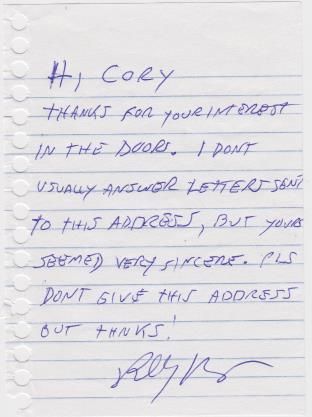 HI, CORY
THANKS FOR YOUR INTEREST
IN THE DOORS. I DONT
USUALLY ANSWER LETTERS SENT
TO THIS ADDRESS, BUT YOURS
SEEMED VERY SINCERE. PLS
DONT GIVE THIS ADDRESS
OUT THNKS!